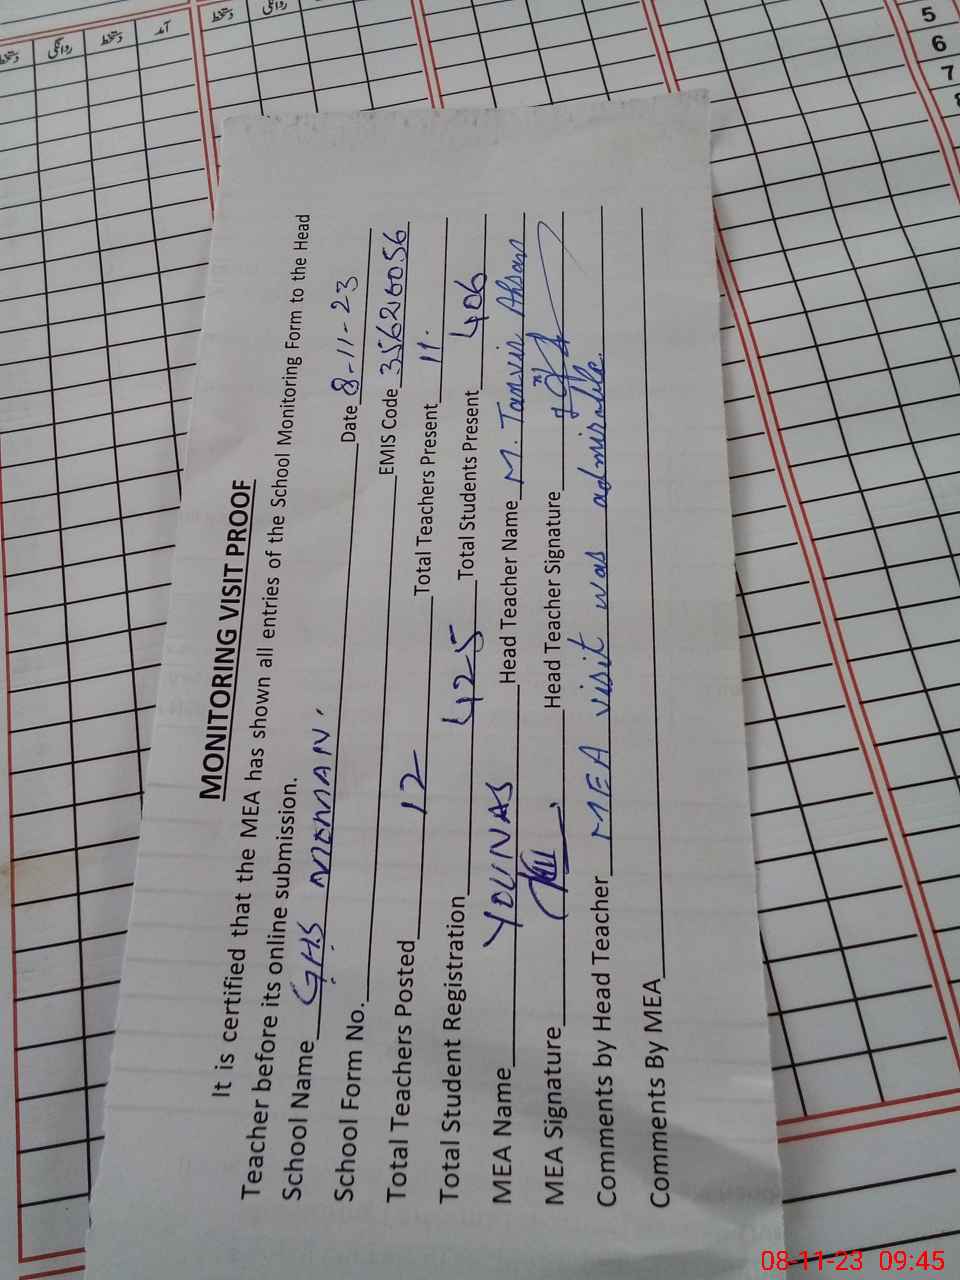 MONITORING VISIT PROOF
It is certified that the MEA has shown all entries of the School Monitoring Form to the Head
Teacher before its online submission.
School Name GHS MOMAN. Date 8-11-23
School Form No. EMIS Code 35620056
Total Teachers Posted 12 Total Teachers Present 11.
Total Student Registration 425 Total Students Present 406
MEA Name YOUNAS Head Teacher Name M. Tanvir Ahsan
MEA Signature Head Teacher Signature
Comments by Head Teacher MEA visit was admirable
Comments By MEA
آمد
دستخط
روانگی
دستخط
دستخط
روانگی
دستخط
5
6
7
8
08-11-23 09:45